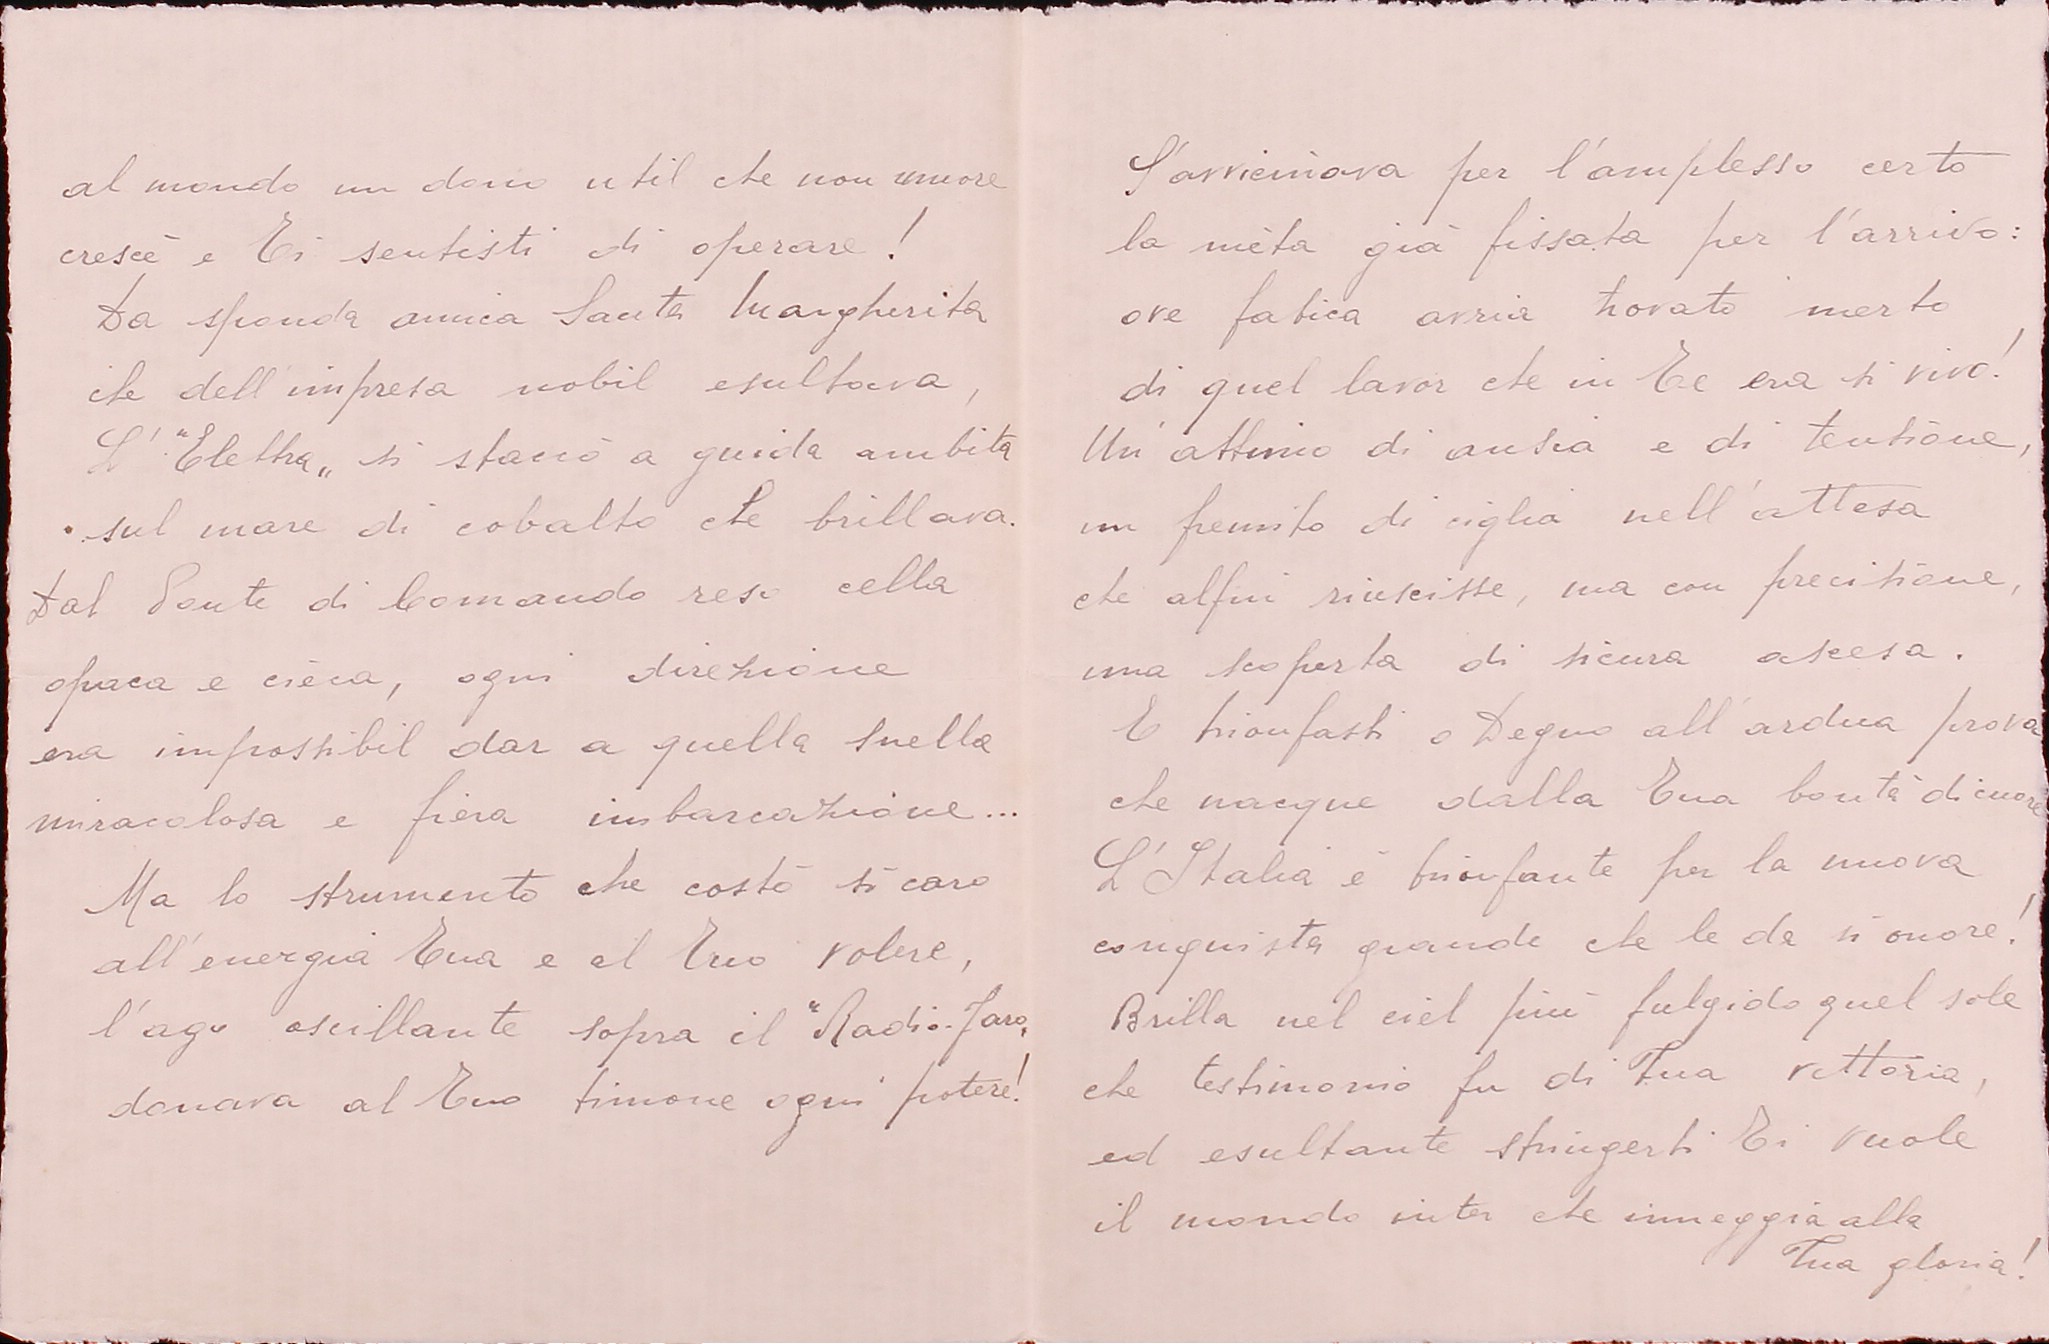 al mondo un dono util che non muore
crescè e Ti sentisti di operare!
Da sponda amica Santa Margherita
che dell'impresa nobil esultava,
L'"Elettra" si staccò a guida ambita
sul mare di cobalto che brillava.
Dal Ponte di Comando reso cella
opaca e cieca, ogni direzione
era impossibil dar a quella snella
miracolosa e fiera imbarcazione...
Ma lo strumento che costò sì caro
all'energia Tua e al Tuo volere,
l'ago oscillante sopra il "Radio-Faro"
donava al Tuo timone ogni potere!
S'avvicinava per l'amplesso certo
la mèta già fissata per l'arrivo:
ove fatica avria trovato merto
di quel lavor che in Te era sì vivo!
Un'attimo di ansia e di tensione,
un fremito di ciglia nell'attesa
che alfin riuscisse, ma con precisione,
una scoperta di sicura ascesa.
E trionfasti o Degno all'ardua prova
che nacque dalla Tua bontà di cuore
L'Italia è trionfante per la nuova
conquista grande che le da sì onore!
Brilla nel ciel più fulgido quel sole
che testimonio fu di Tua vittoria,
ed esultante stringerti Ti vuole
il mondo inter che inneggia alla
Tua gloria!